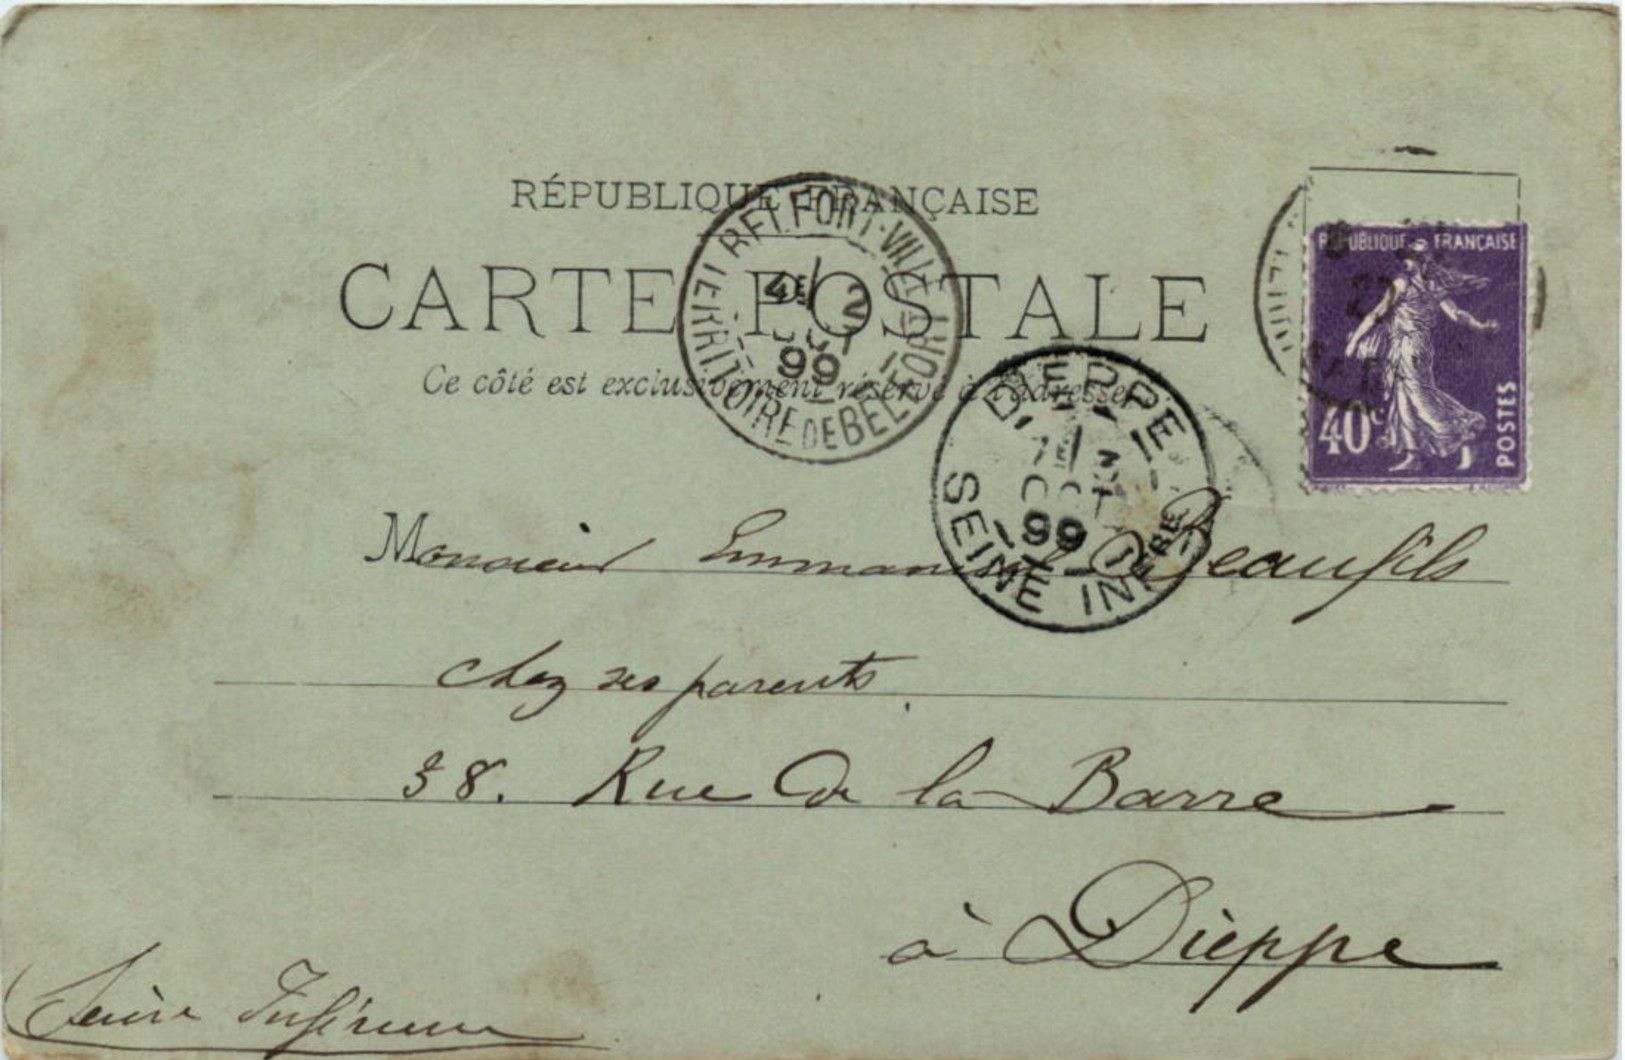 RÉPUBLIQUE FRANÇAISE
CARTE POSTALE
Ce côté est exclusivement réservé à l'adresse
BELFORT-VILLE
4E 2
99
TERRITOIRE DE BELFORT
DIEPPE
3
99
SEINE INFRE
REPUBLIQUE FRANÇAISE
40c POSTES
Monsieur Emmanuel Beaufils
chez ses parents
38. Rue de la Barre
à Dieppe
Seine Inférieure